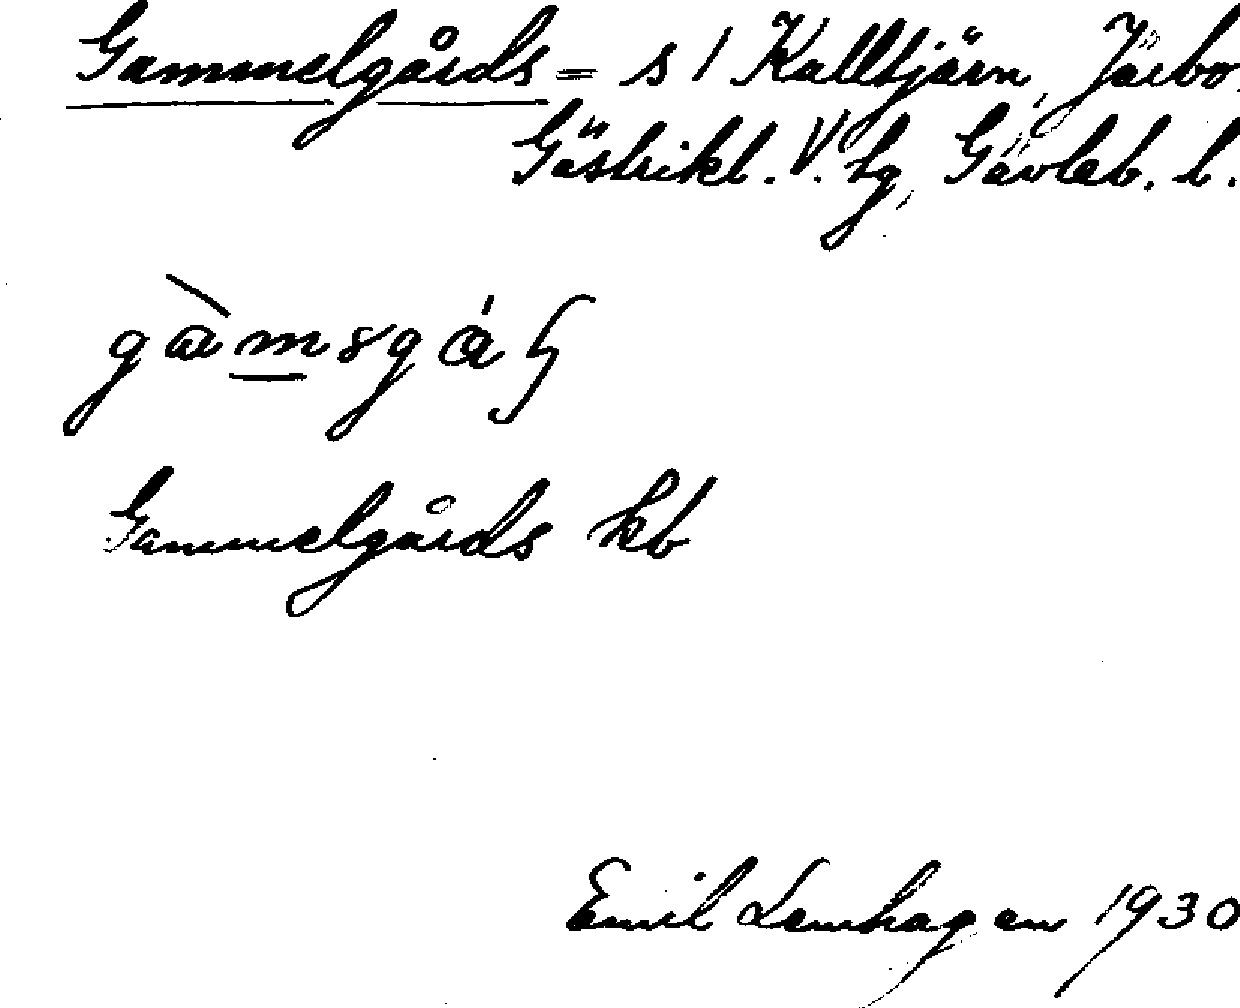 Gammelgårds = s / Kalltjärn, Järbo
Gästrikl. V. tg, Gävleb. l.
Gammelgårds kb
Emil Lemhagen 1930